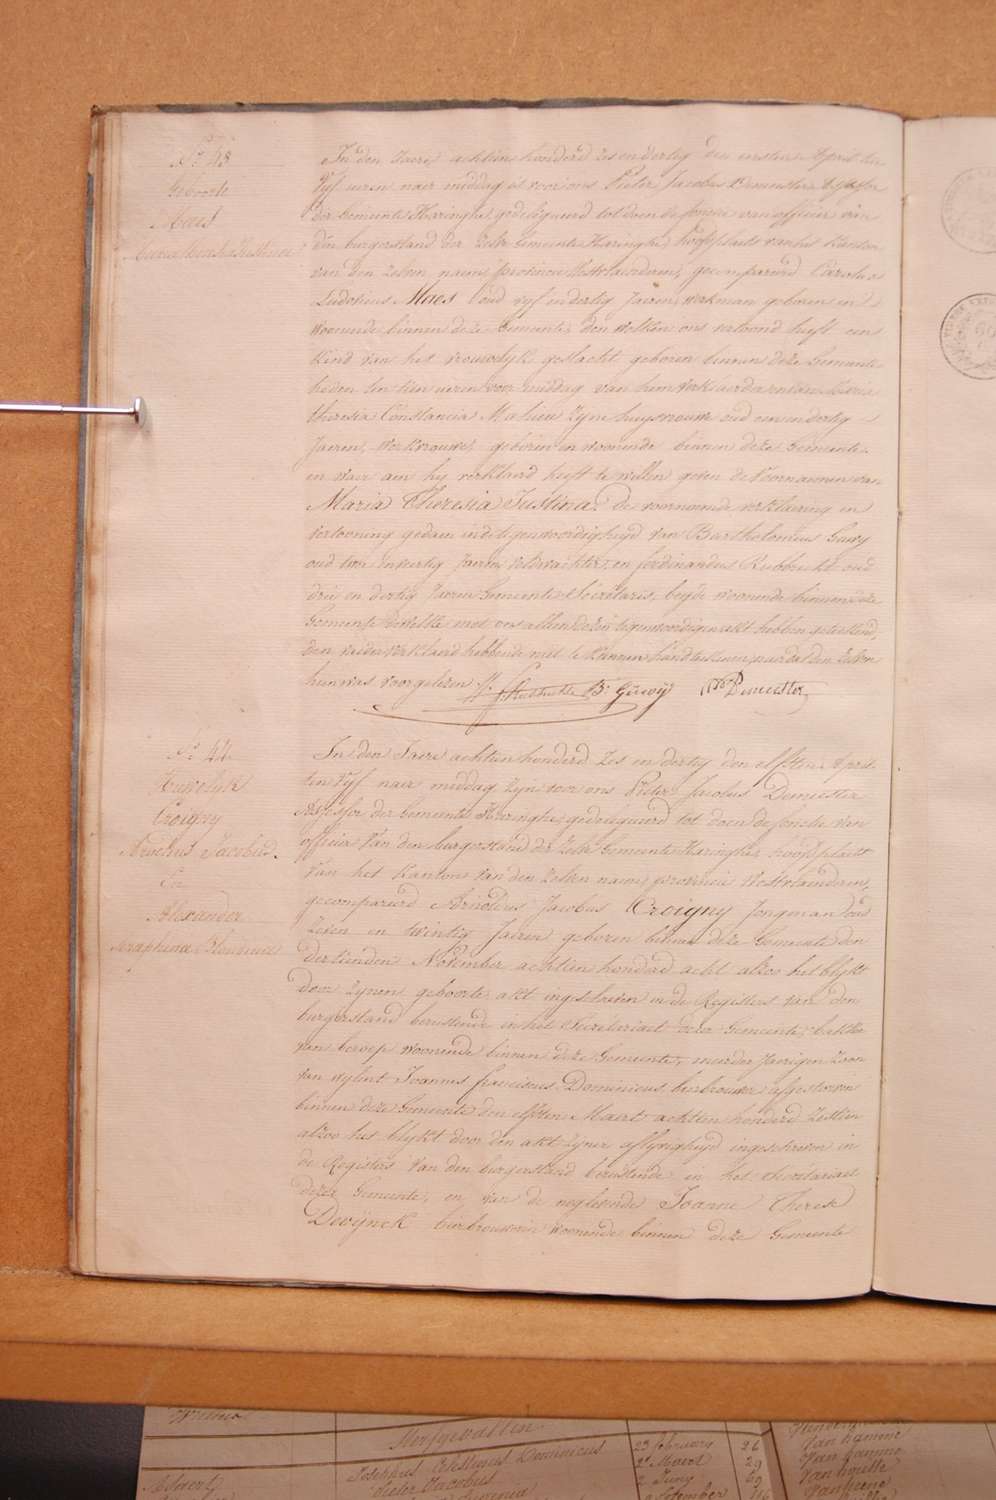 Nr 43
Geboorte
Maes
Maria Theresia Justina
In den Jaere achtien honderd zes en dertig den eersten April ten
vyf uren naer middag is voor ons Pieter Jacobus Demeester assessor
der Gemeente Haringhe, gedelegueerd tot doen de fonctie van officier van
den burgerstand der zelve Gemeente Haringhe, hoofdplaets van het Kanton
van den zelven naem, provincie Westvlaenderen, gecompareerd Carolus
Ludovicus Maes oud vyf en dertig Jaeren, werkman geboren en
woonende binnen deze Gemeente, den welken ons vertoond heeft een
Kind van het vrouwelyk geslacht geboren binnen deze Gemeente
heden ten tien uren voor middag van hem verklaerder en van Maria
Theresia Constancia Mahieu zyne huysvrouwe oud een en dertig
Jaeren, werkvrouwe, geboren en woonende binnen deze Gemeente
en waer aen hy verklaerd heeft te willen geven de voornaemen van
Maria Theresia Justina. De voornoemde verklaering en
vertooning gedaen in de tegenwoordigheyd van Bartholomeus Gewy
oud twee en veertig Jaeren veldwachter, en ferdinandus Rubbrecht oud
drie en dertig Jaeren Gemeente Secretaris, beyde woonende binnen deze
Gemeente dewelke met ons alleen dezen tegenwoordigen akt hebben geteekend,
den vader verklaerd hebbende niet te kunnen handteekenen naer dat den zelven
hun was voorgelezen
f. Rubbrecht B. Gewÿ Demeester
Nr 44
Huwelyk
Croigny
Arnoldus Jacobus
en
Alexander
Seraphina Blondine
In den Jaere achtien honderd zes en dertig den elfsten April
ten vyf naer middag zyn voor ons Pieter Jacobus Demeester
Assessor der Gemeente Haringhe, gedelegueerd tot doen de fonctie van
officier van den burgerstand der zelve Gemeente Haringhe, hoofdplaets
van het Kanton van den zelven naem, provincie Westvlaenderen,
gecompareerd Arnoldus Jacobus Croigny Jongman oud
zeven en twintig Jaeren geboren binnen deze Gemeente den
dertienden November achtien honderd acht alzoo het blykt
door zynen geboorte akt ingeschreven in de Registers van den
burgerstand berustende in het Secretariaet dezer Gemeente, bakker
van beroep woonende binnen deze Gemeente, meerder Jaerigen Zoon
van wylent Joannes franciscus Dominicus bierbrouwer afgestorven
binnen deze Gemeente den elfsten Maert achtien honderd zestien
alzoo het blykt door den akt zyner aflyvigheyd ingeschreven in
de Registers van den burgerstand berustende in het Secretariaet
dezer Gemeente, en van de nog levende Joanne Therese
Dewÿnck bierbrouwerin woonende binnen deze Gemeente
Sterfgevallen
Josephus Dominicus 23 february 26
Pieter Jacobus 2 Maert 29
2 Juny 69
Septembre 116
Van hamme
Van hamme